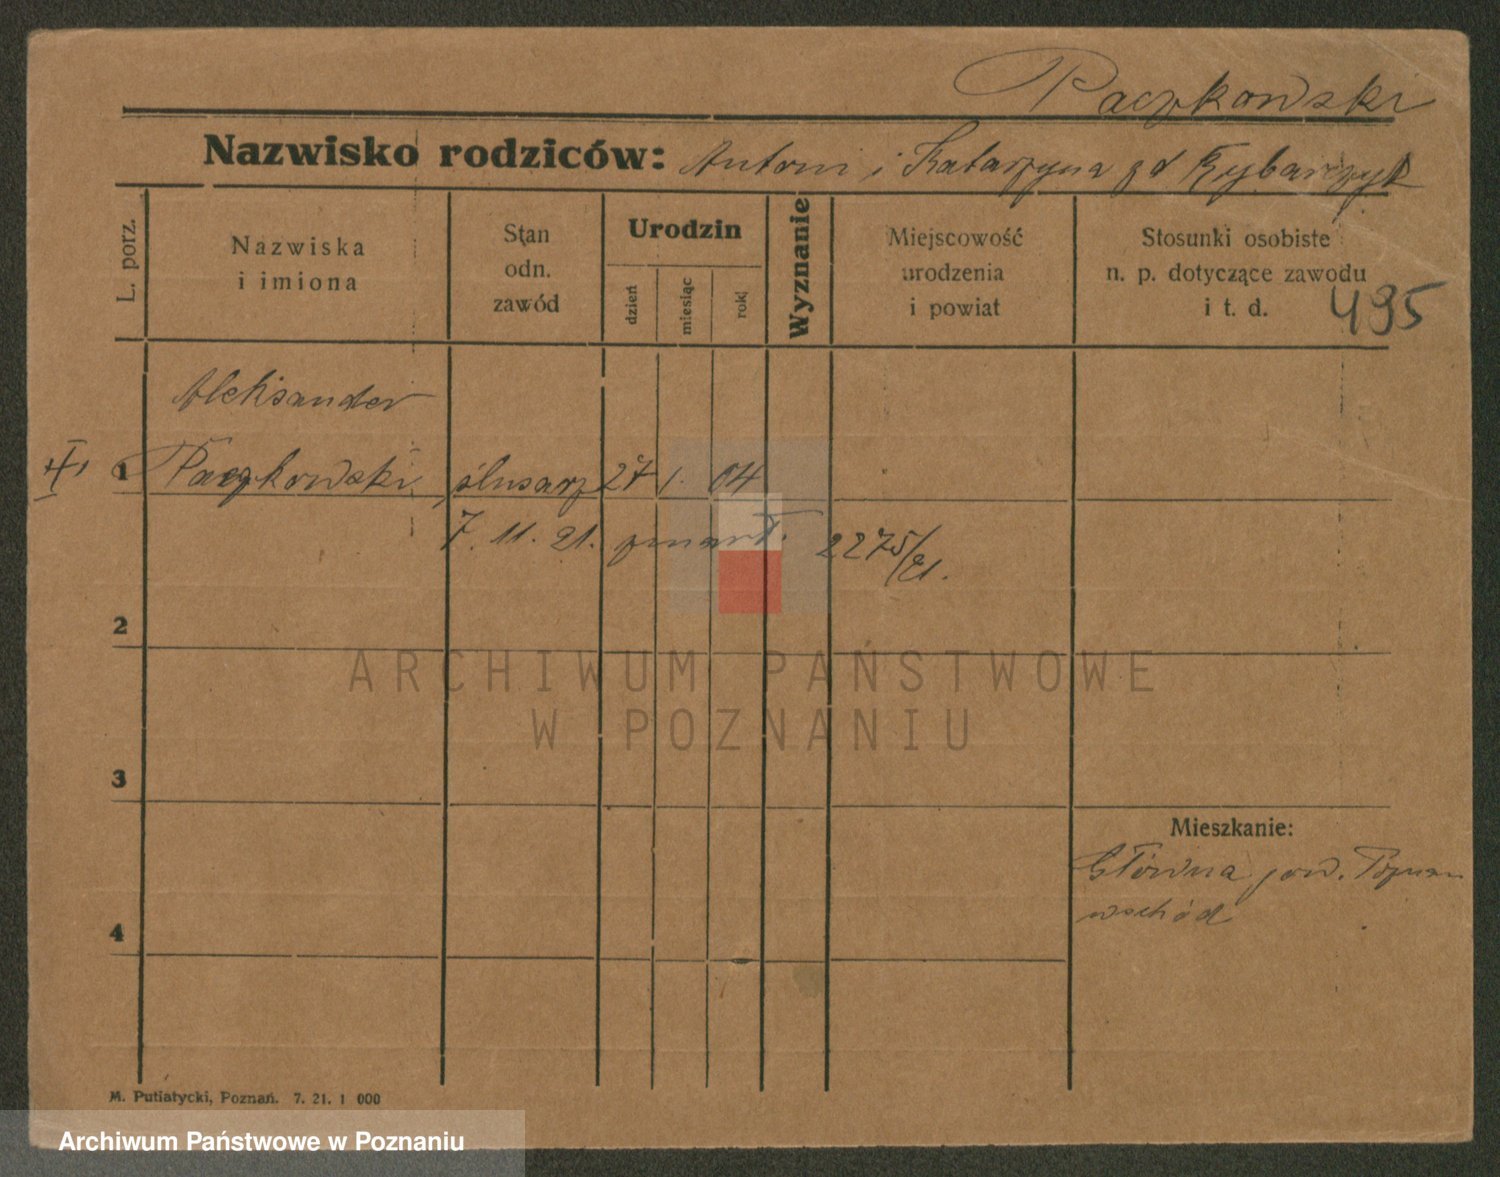 Paczkowski
Nazwisko rodziców: Antoni i Katarzyna zd Rybarczyk
L. porz.
Nazwiska
i imiona
Stan
odn.
zawód
Urodzin
dzień
miesiąc
rok
Wyznanie
Miejscowość
urodzenia
i powiat
Stosunki osobiste
n. p. dotyczące zawodu
i t. d.
495
Aleksander
1 Paczkowski ślusarz 27 1. 04
7. 11. 21. zmarł. 2275/21.
2
ARCHIWUM PAŃSTWOWE
W POZNANIU
3
Mieszkanie:
Główna pow. Poznań
wschód
4
M. Putiatycki, Poznań. 7. 21. 1 000
Archiwum Państwowe w Poznaniu